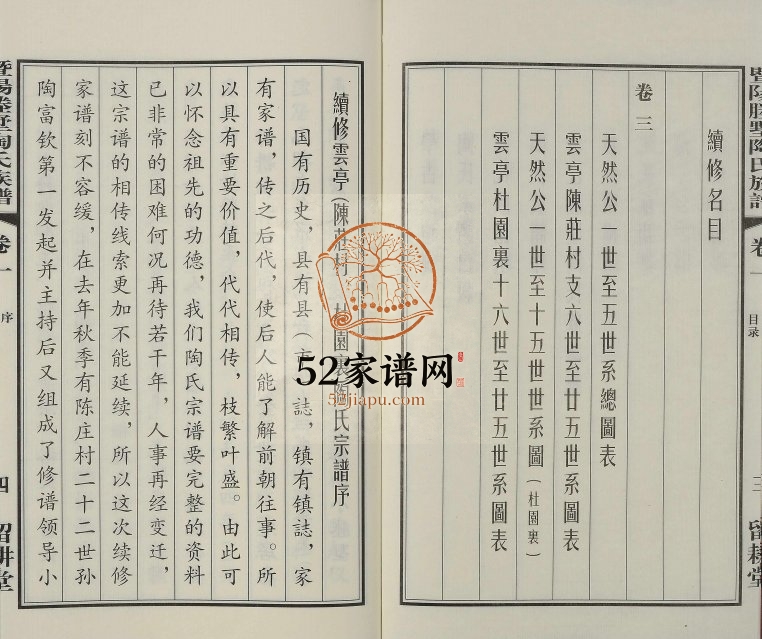 陶氏族譜
卷一
目录
三
留耕堂
續修名目
卷三
天然公一世至五世系總圖表
雲亭陳莊村支六世至廿五世系圖表
天然公一世至十五世世系圖(杜園裏)
雲亭杜園裏十六世至廿五世系圖表
續修雲亭(陳莊村 園裏陶氏宗譜序
国有历史，县有县( 誌，镇有镇誌，家
有家谱，传之后代，使后人能了解前朝往事。所
以具有重要价值，代代相传，枝繁叶盛。由此可
以怀念祖先的功德，我们陶氏宗谱要完整的资料
已非常的困难何况再待若干年，人事再经变迁，
这宗谱的相传线索更加不能延续，所以这次续修
家谱刻不容缓，在去年秋季有陈庄村二十二世孙
陶富钦第一发起并主持后又组成了修谱领导小
陶氏族譜
卷一
序
四
留耕堂
52家谱网
52jiapu.com